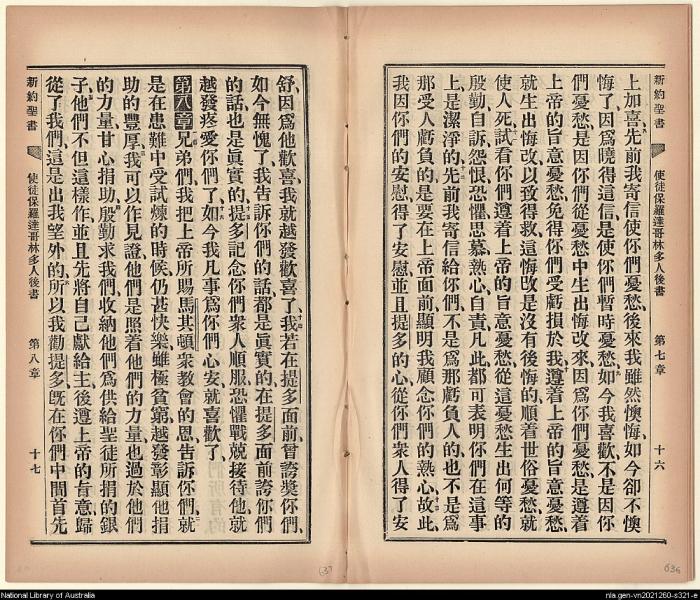 新約聖書 使徒保羅達哥林多人後書 第七章 十六
上加喜先前我寄信使你們憂愁後來我雖然懊悔如今卻不懊
悔了因爲曉得這信是使你們暫時憂愁如今我喜歡不是因你
們憂愁是因你們從憂愁中生出悔改來因爲你們憂愁是遵着
上帝的旨意憂愁免得你們受虧損於我遵着上帝的旨意憂愁
就生出悔改以致得救這悔改是沒有後悔的順着世俗憂愁就
使人死試看你們遵着上帝的旨意憂愁從這憂愁生出何等的
殷勤自訴怨恨恐懼思慕熱心自責凡此都可表明你們在這事
上是潔淨的先前我寄信給你們不是爲那虧負人的也不是爲
那受人虧負的是要在上帝面前顯明我顧念你們的熱心故此
我因你們的安慰得了安慰並且提多的心從你們衆人得了安
舒因爲他歡喜我就越發歡喜了我若在提多面前曾誇獎你們
如今無愧了我告訴你們的話都是眞實的在提多面前誇你們
的話也是眞實的提多記念你們衆人順服恐懼戰兢接待他就
越發疼愛你們了如今我凡事爲你們心安就喜歡了
第八章兄弟們我把上帝所賜馬其頓衆教會的恩告訴你們就
是在患難中受試煉的時候仍甚快樂雖極貧窮越發彰顯他捐
助的豐厚我可以作見證他們是照着他們的力量也過於他們
的力量甘心捐助殷勤求我們收納他們爲供給聖徒所捐的銀
子他們不但這樣作並且先將自己獻給主後遵上帝的旨意歸
從了我們這是出我望外的所以我勸提多旣在你們中間首先
新約聖書 使徒保羅達哥林多人後書 第八章 十七
National Library of Australia
nla.gen-vn2021260-s321-e